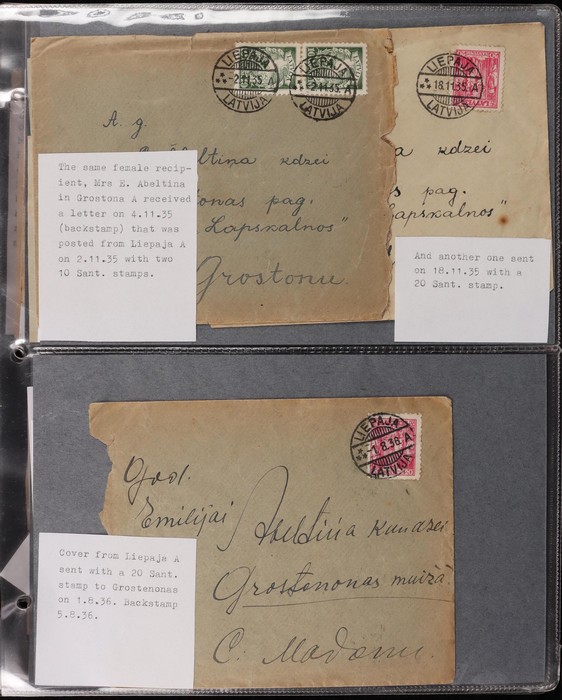 LIEPAJA
-2.11.35.A
LATVIJA
LIEPAJA
-2.11.35.A
LATVIJA
A. g.
Abeltiņa kdzei
pag.
"Lapskalnos"
Grostonu.
The same female recip-
ient, Mrs E. Abeltina
in Grostona A received
a letter on 4.11.35
(backstamp) that was
posted from Liepaja A
on 2.11.35 with two
10 Sant. stamps.
LIEPAJA
18.11.35.A
LATVIJA
a kdzei
s pag.
Lapskalnos"
And another one sent
on 18.11.35 with a
20 Sant. stamp.
LIEPAJA
1.8.36.A
LATVIJA
God.
Emilijai Abeltiņa kundzei
Grostenonas muižā.
C. Madonu.
Cover from Liepaja A
sent with a 20 Sant.
stamp to Grostenonas
on 1.8.36. Backstamp
5.8.36.